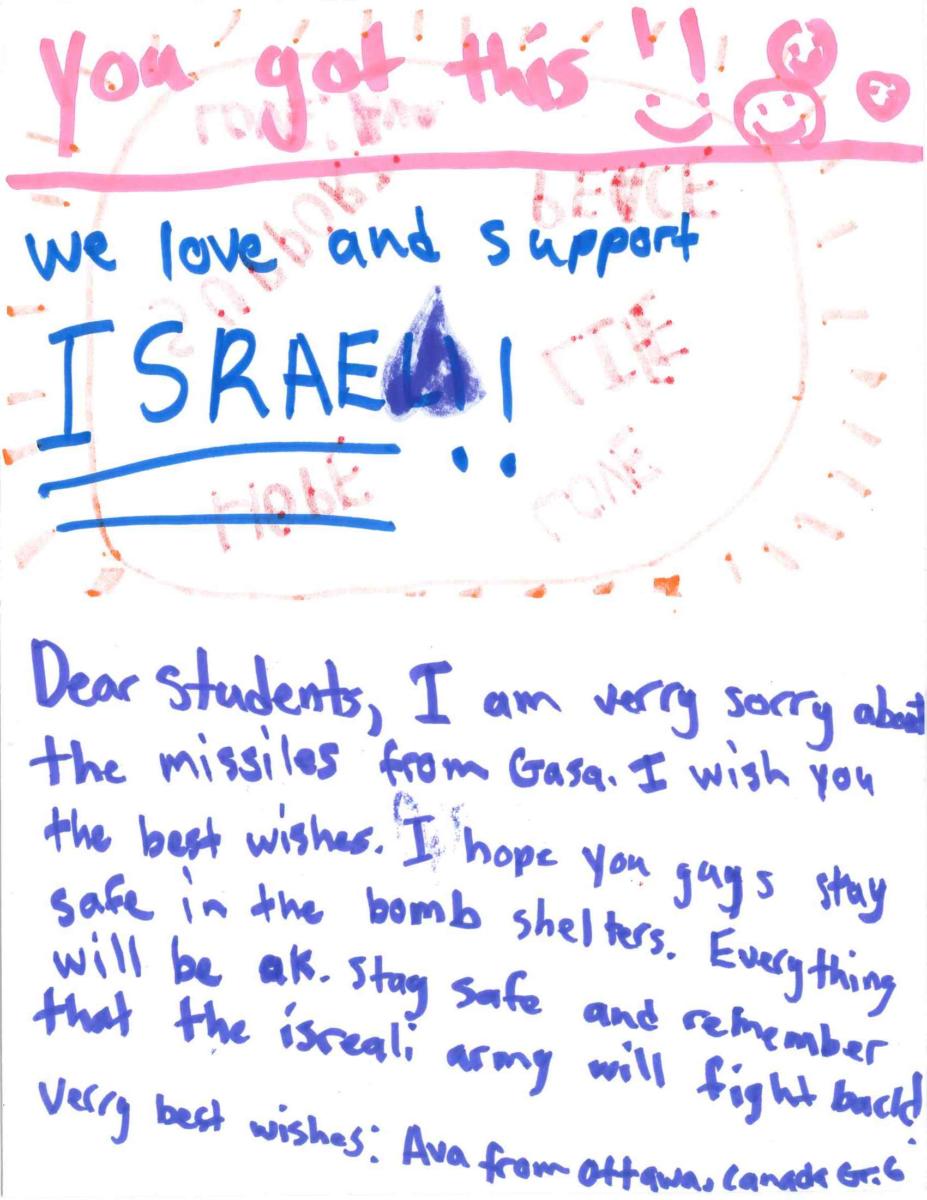 You got this !!
PEACE
we love and support
ISRAEL!!
Dear students, I am verry sorry about
the missiles from Gasa. I wish you
the best wishes. I hope you guys stay
safe in the bomb shelters. Everything
will be ok. Stay safe and remember
that the isreali army will fight back!
Verry best wishes: Ava from Ottawa, Canada Gr.6